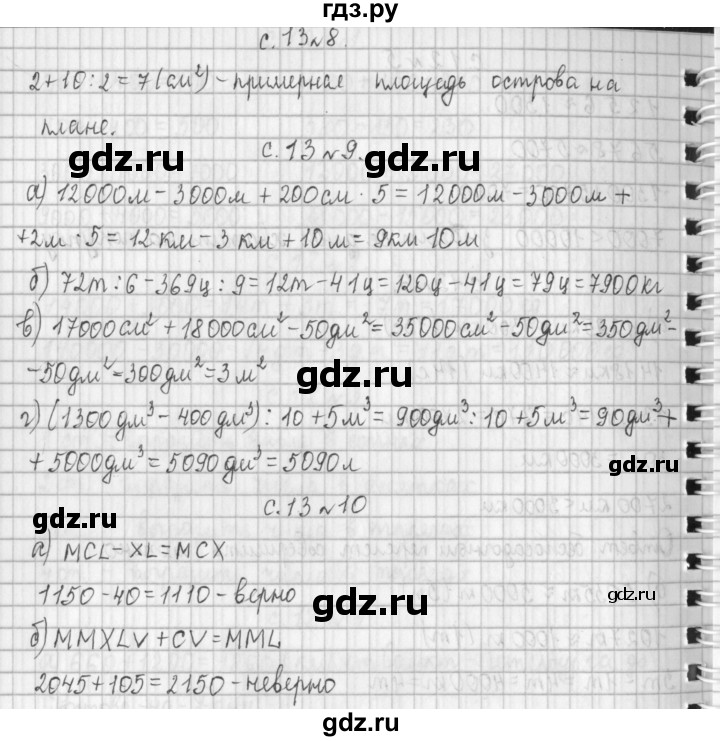 гдз.ру
с. 13 №8.
2+10:2=7(см²)-примерная площадь острова на
плане.
gdz.ru gdz.ru
с. 13 №9.
а) 12000м-3000м+200см·5=12000м-3000м+
+2м·5=12км-3км+10м=9км 10м
б) 72т:6-369ц:9=12т-41ц=120ц-41ц=79ц=7900кг
в) 17000см²+18000см²-50дм²=35000см²-50дм²=350дм²-
-50дм²=300дм²=3м²
gdz.ru
г) (1300дм³-400дм³):10+5м³=900дм³:10+5м³=90дм³+
+5000дм³=5090дм³=5090л
gdz.ru
с. 13 №10
gdz.ru
а) MCL-XL=MCX
1150-40=1110-верно
gdz.ru gdz.ru
б) MMXLV+CV=MML
2045+105=2150-неверно
gdz.ru